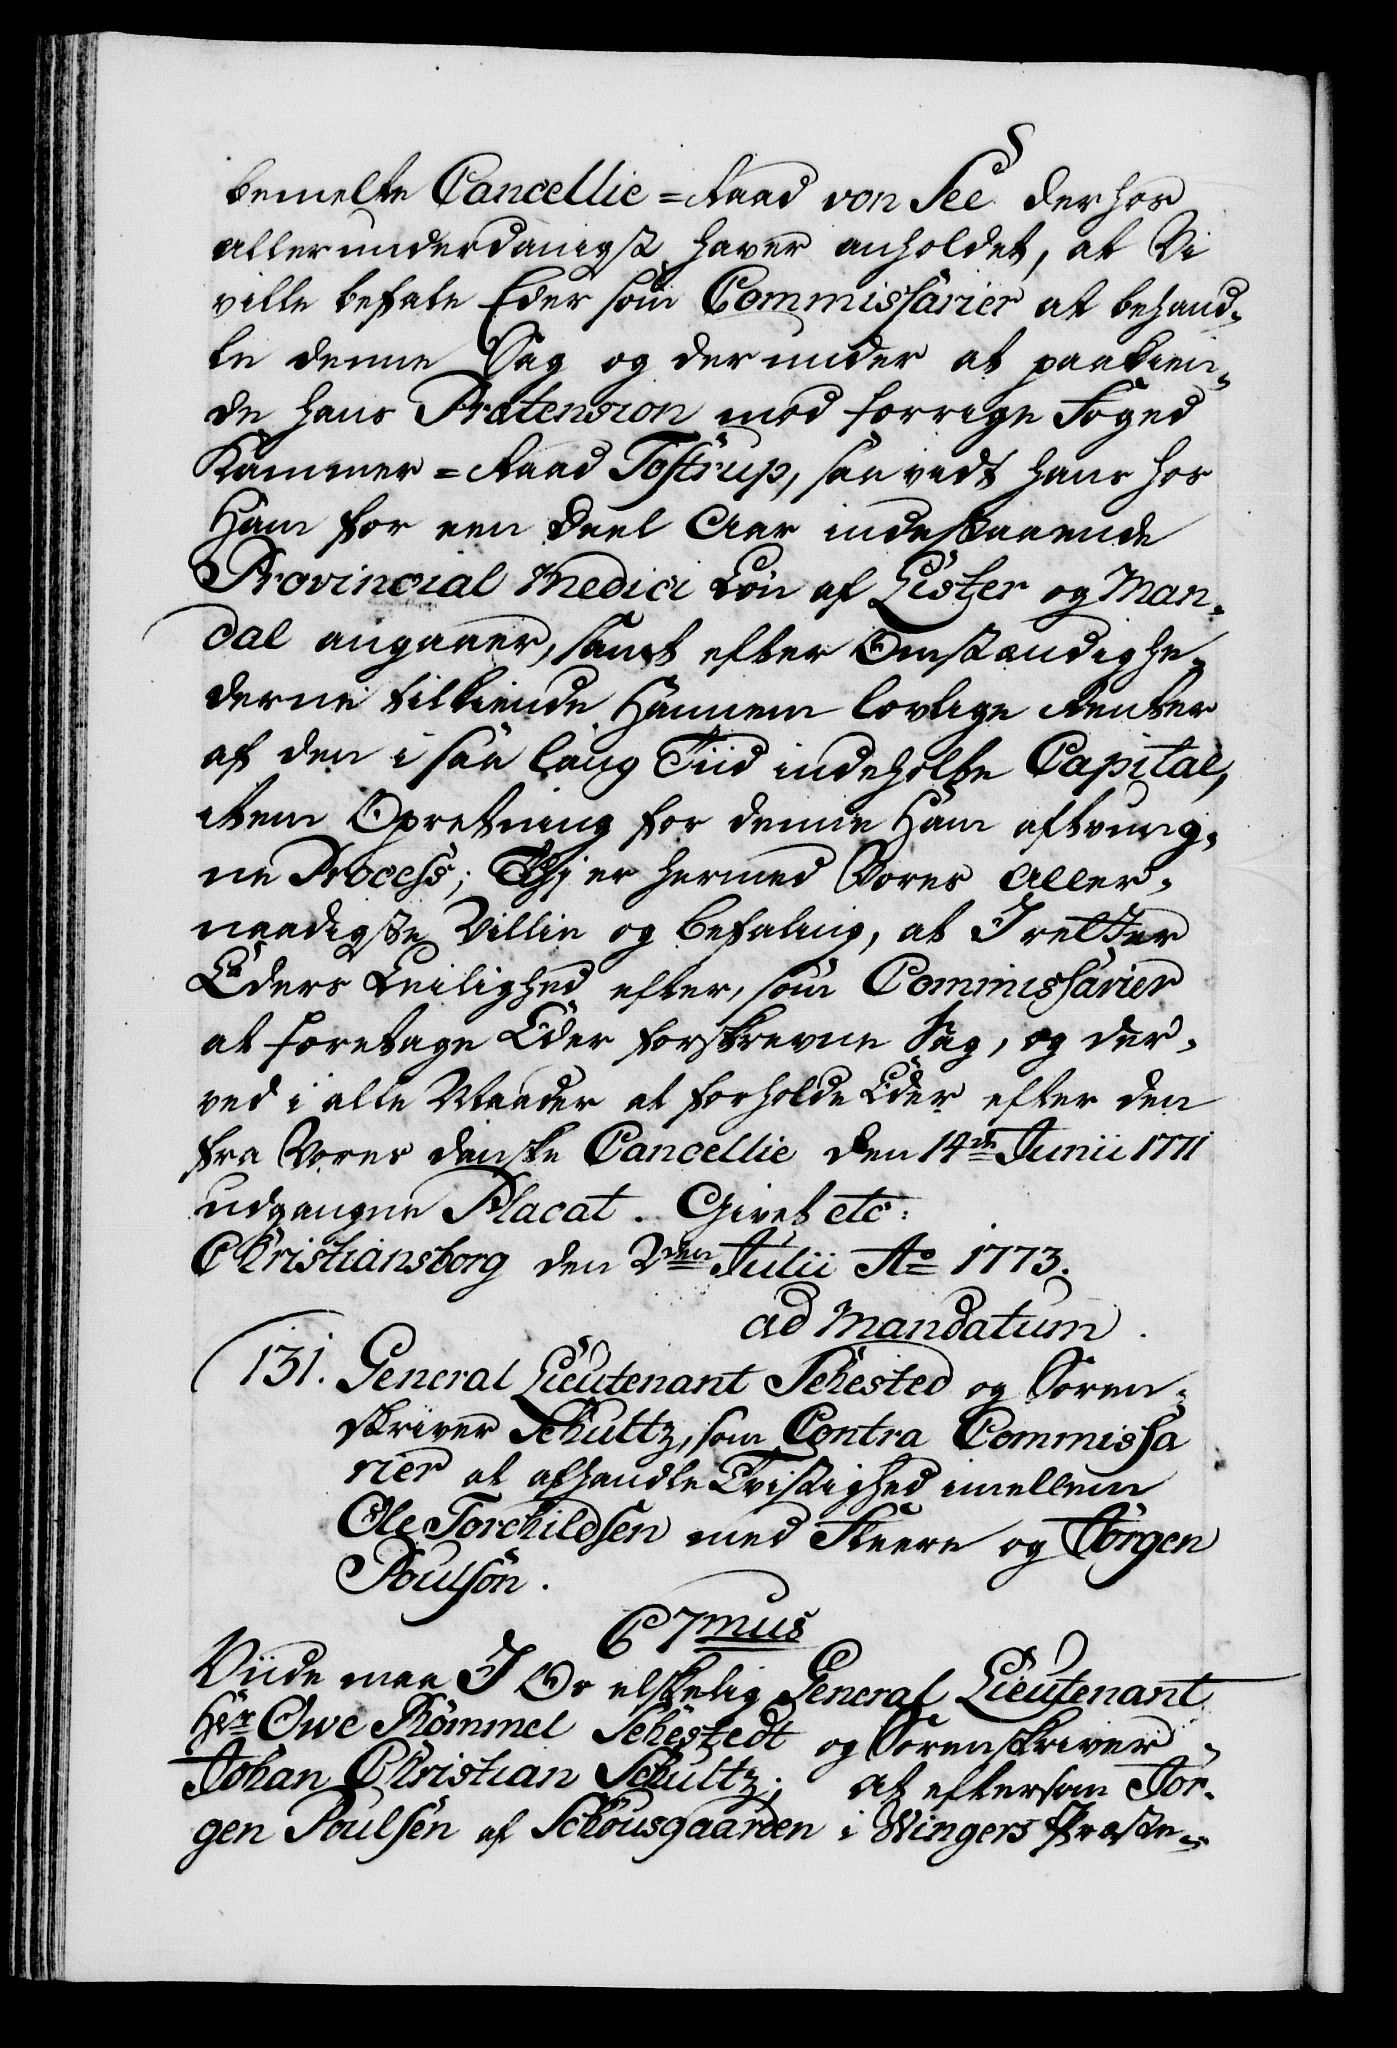 bemelte Cancellie=Raad von See derhos
allerunderdanigst haver anholdet, at Vi
ville befale Eder som Commissarier at behand-
le denne Sag og derunder at paakien-
de hans Prætension mod forrige Foged
Kammer=Raad Tostrup, saavidt hans hos
Ham for een Deel Aar indestaaende
Provincial Medici Løn af Lister og Man-
dal angaaer, samt efter Omstændighe-
derne tilkiende Hannem lovlige Renter
af den i saa lang Tiid indeholte Capital,
item Opretning for denne Ham aftvung-
ne Process; Thj er hermed Vores Aller-
naadigste Villie og Befaling, at I retter
Eders Leilighed efter, som Commissarier
at foretage Eder forskrevne Sag, og der-
ved i alle Maader at forholde Eder efter den
fra Vores danske Cancellie den 14de Junii 1771
udgangne Placat. Givet etc:
Christiansborg den 2den Julii Ao 1773.
ad Mandatum.
131. General Lieutenant Sehested og Soren-
skriver Schultz, som Contra Commissa
rier at afhandle Tvistighed imellem
Ole Torchildsen med Fleere og Jørgen
Poulsøn.
C 7mus
Viide maa I Os elskelig General Lieutenant
Hr Owe Rømmel Sehestedt og Sorenskriver
Johan Christian Schultz; at eftersom Jør-
gen Poulsen af Schousgaarden i Wingers Præste-